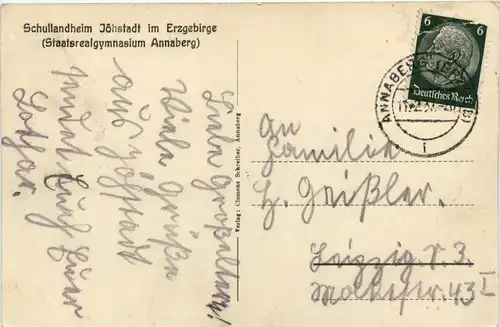 Schullandheim Jöhstadt im Erzgebirge
(Staatsrealgymnasium Annaberg)
Liebe Großeltern!
Viele Grüße
aus Jöhstadt
sendet Euch Euer
Lothar.
Verlag: Clemens Schreiber, Annaberg
6 6
Deutsches Reich
ANNABERG (ERZGEB)
i
An
Familie
H. Geißler.
Leipzig S. 3.
Moltkestr. 43 I